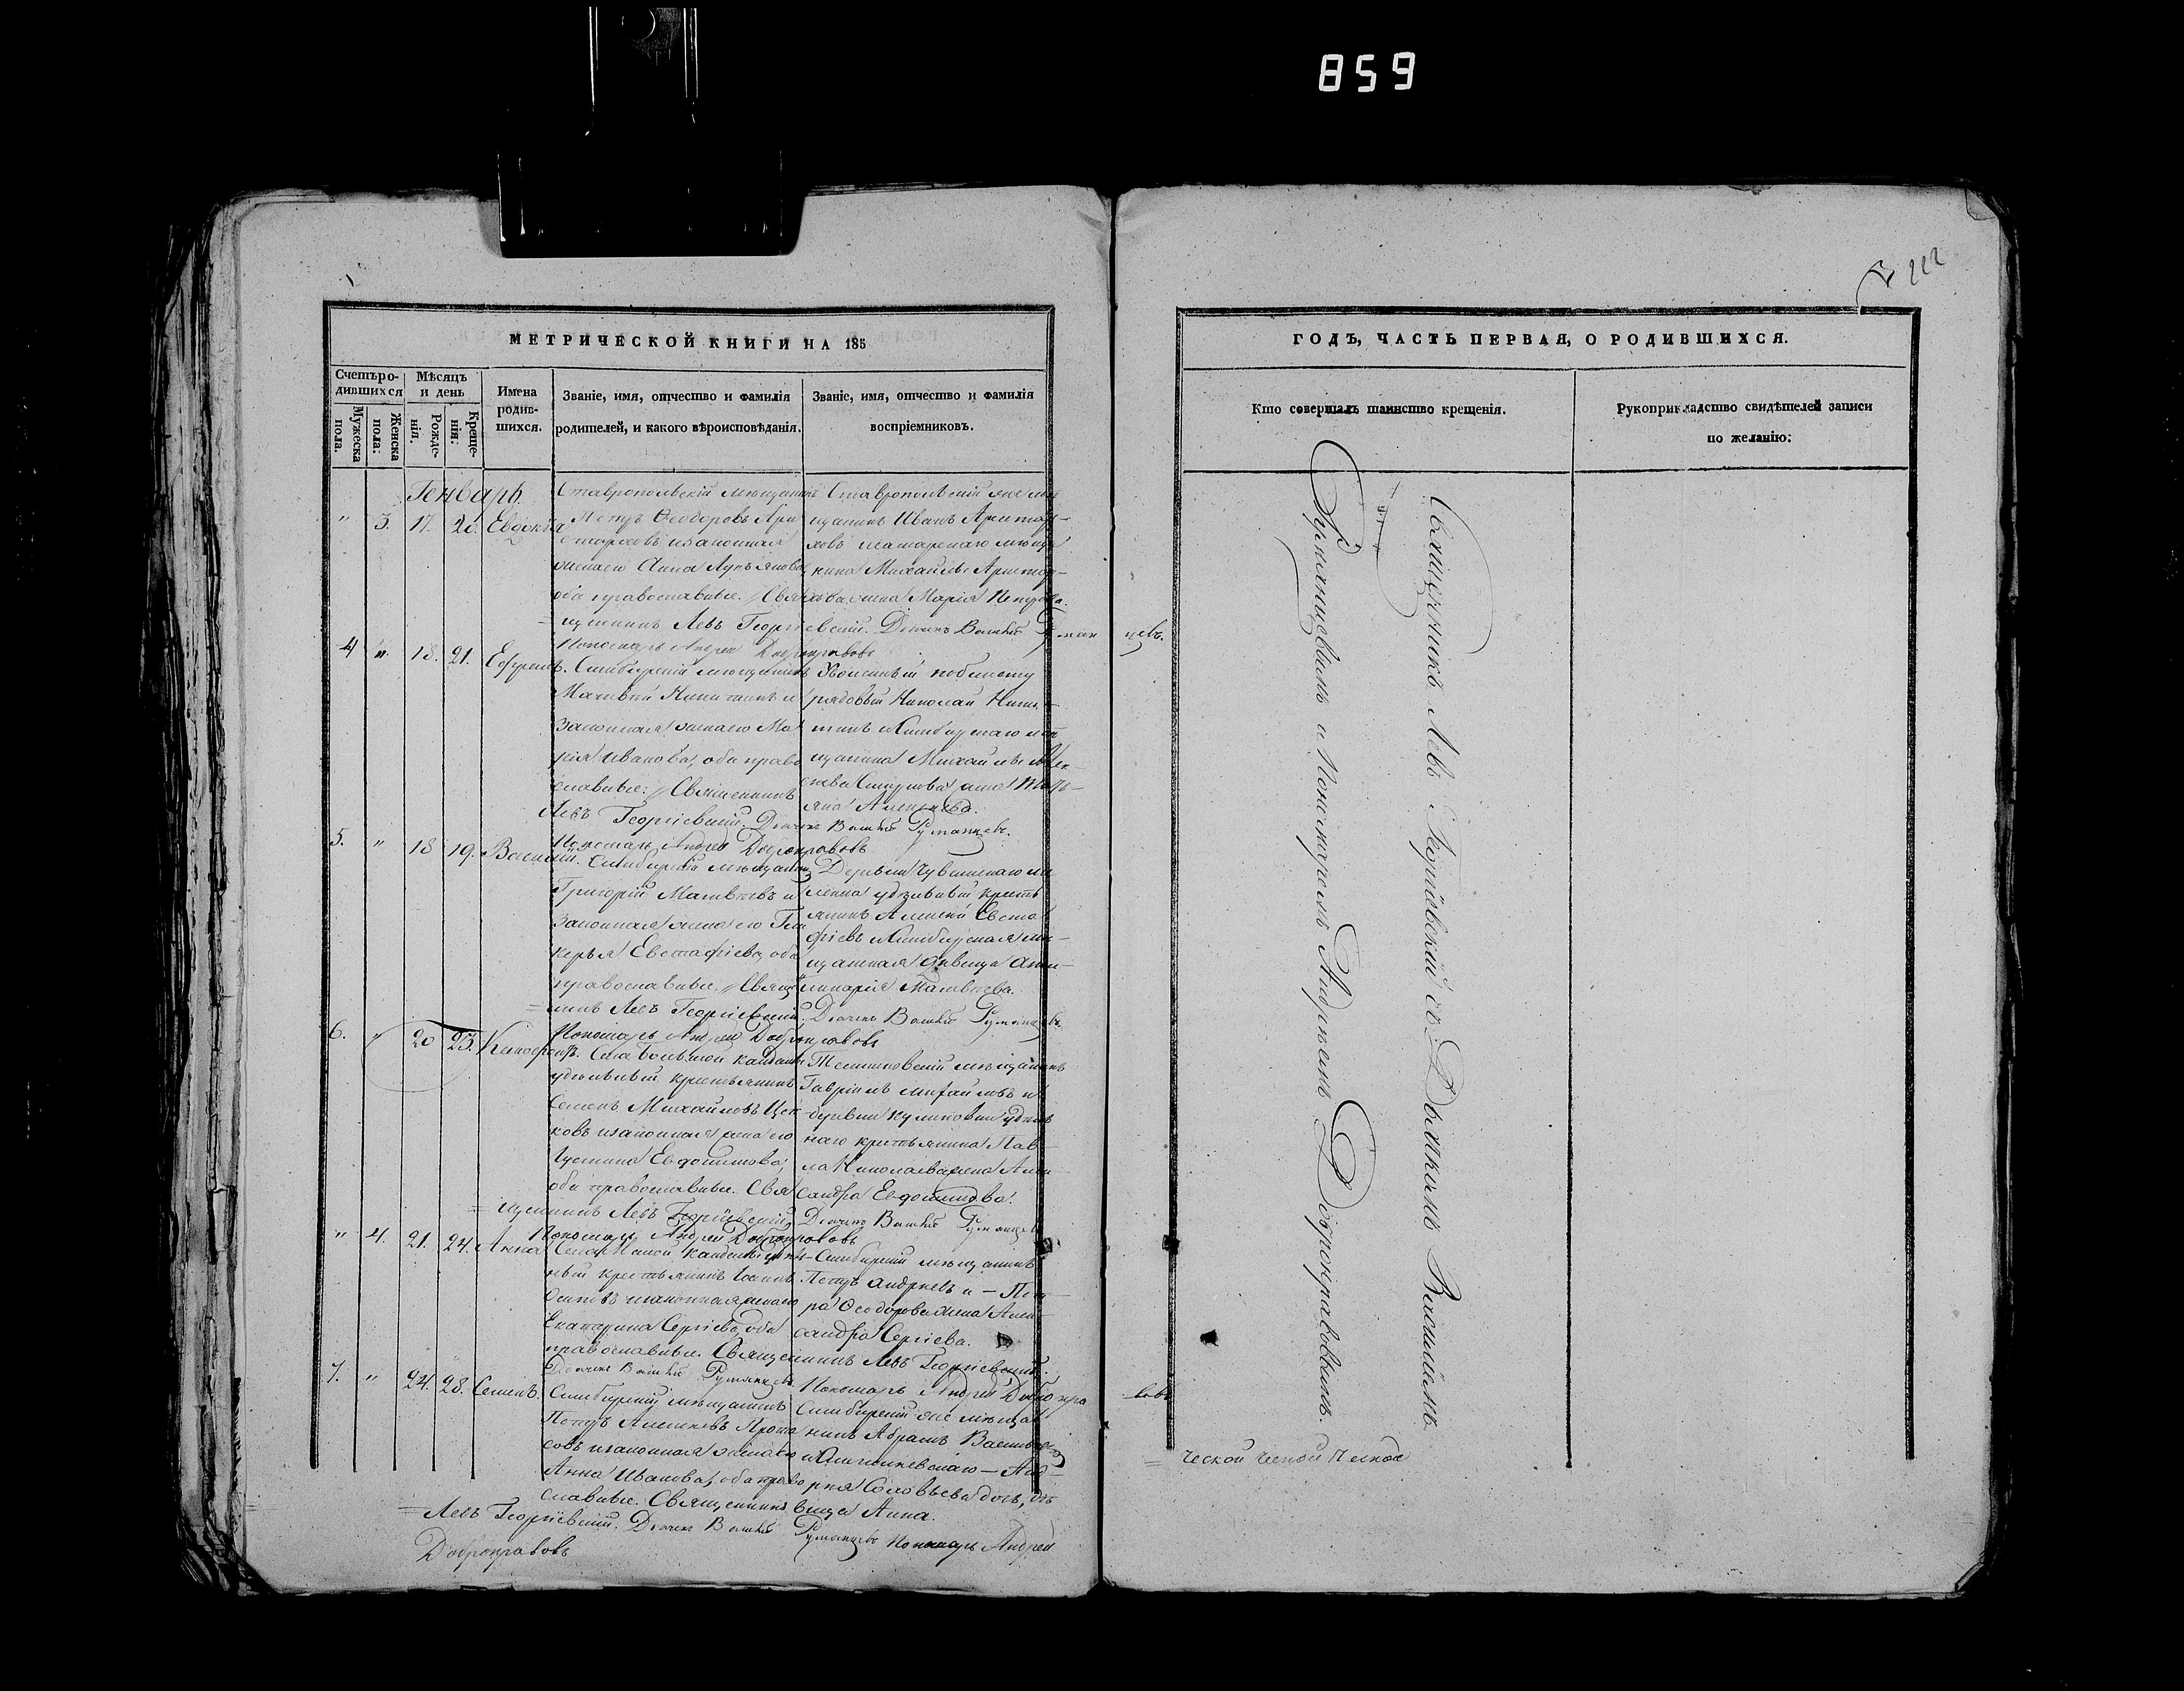 859
222
МЕТРИЧЕСКОЙ КНИГИ НА 185
Счетъ ро-
дившихся
Мужеска
пола.
Женска
пола:
Мѣсяцъ
и день
Рожде-
нія.
Креще-
нія:
Имена
родив-
шихся.
Званіе, имя, отчество и фамилія
родителей, и какого вѣроисповѣданія.
Званіе, имя, отчество и фамилія
воспріемниковъ.
Генварь
" 3. 17. 20. Евдокія
Ставропольскій мѣщанинъ
Петръ Ѳеодоровъ Ари-
старховъ и законная
жена его Анна Лукьянова,
оба православные. Свя
щенникъ Левъ Георгіевскій. Дьячекъ Василій Румянцевъ.
Пономарь Андрей Добронравовъ
Ставропольскій же мѣ
щанинъ Иванъ Аристар-
ховъ
Михайлы Аристар-
хова жена Марія Петрова.
4 " 18. 21. Ефремъ.
Симбирскій мѣщанинъ
Матвѣй Никитинъ и
законная жена его Ма
рія Иванова, оба право
славные: Священникъ
Левъ Георгіевскій. Дьячекъ Василій Румянцевъ.
Пономарь Андрей Добронравовъ
рядовый Николай Ники-
тинъ и Симбирскаго мѣ
щанина Михайлы
5. " 18 19. Василій.
Симбирскій мѣщанинъ
Григорій Матвѣевъ и
законная жена его Гли
керья Евстафіева, оба
православные. Священ
никъ Левъ Георгіевскій. Дьячекъ Василій Румянцевъ.
Пономарь Андрей Добронравовъ
Деревни
удѣльный кресть
янинъ Алексѣй Евста
фіевъ и Симбирская мѣ-
щанская дѣвица Апол-
линарія Матвѣева.
6. " 20 23. Ксенофонтъ.
Села Большой Кандалы
удѣльный крестьянинъ
Семенъ Михайловъ
ковъ и законная жена его
Устина Евдокимова,
оба православные. Свя
щенникъ Левъ Георгіевскій, Дьячекъ Василій Румянцевъ
Пономарь Андрей Добронравовъ
мѣщанинъ
Гавріилъ Михайловъ и
деревни Куликовки удѣль
наго крестьянина Пав-
ла Николаева жена Алек-
сандра Евдокимова.
" 4. 21. 24. Анна
Села Малой Кандалы удѣль-
ный крестьянинъ
Осиповъ и законная жена его
Екатерина Сергіева, оба
православные. Священникъ Левъ Георгіевскій.
Дьячекъ Василій Румянцевъ. Пономарь Андрей Добронравовъ
Симбирскій мѣщанинъ
Петръ Андреевъ и - Пет-
ра Ѳеодорова жена Алек-
сандра Сергіева.
7. " 24. 28. Семенъ.
Симбирскій мѣщанинъ
Петръ Алексѣевъ
совъ и законная жена его
Анна Иванова, оба право
славные. Священникъ
Левъ Георгіевскій. Дьячекъ Василій Румянцевъ Пономарь Андрей
Добронравовъ
Симбирскій же мѣща
нинъ Абрамъ Васильевъ
Анд-
рея Соловьева дочь, дѣ
вица Анна.
ГОДЪ, ЧАСТЬ ПЕРВАЯ, О РОДИВШИХСЯ.
Кто совершалъ таинство крещенія.
Рукоприкладство свидѣтелей записи
по желанію:
Священникъ Левъ Георгіевскій съ Дьячкомъ Василіемъ
Румянцевымъ и Пономаремъ Андреемъ Добронравовымъ.